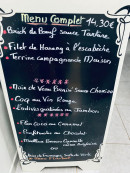 Menu Complet 14,30€
Brick de Bœuf sauce Tartare
Filet de Hareng à l'escabèche
Terrine campagnarde Maison
Noix de Veau Braisé Sauce Chorizo
Coq au Vin Rouge
Endives gratinées au Jambon
Flan Coco au Caramel
Profiteroles au Chocolat
Moelleux Banane
ou